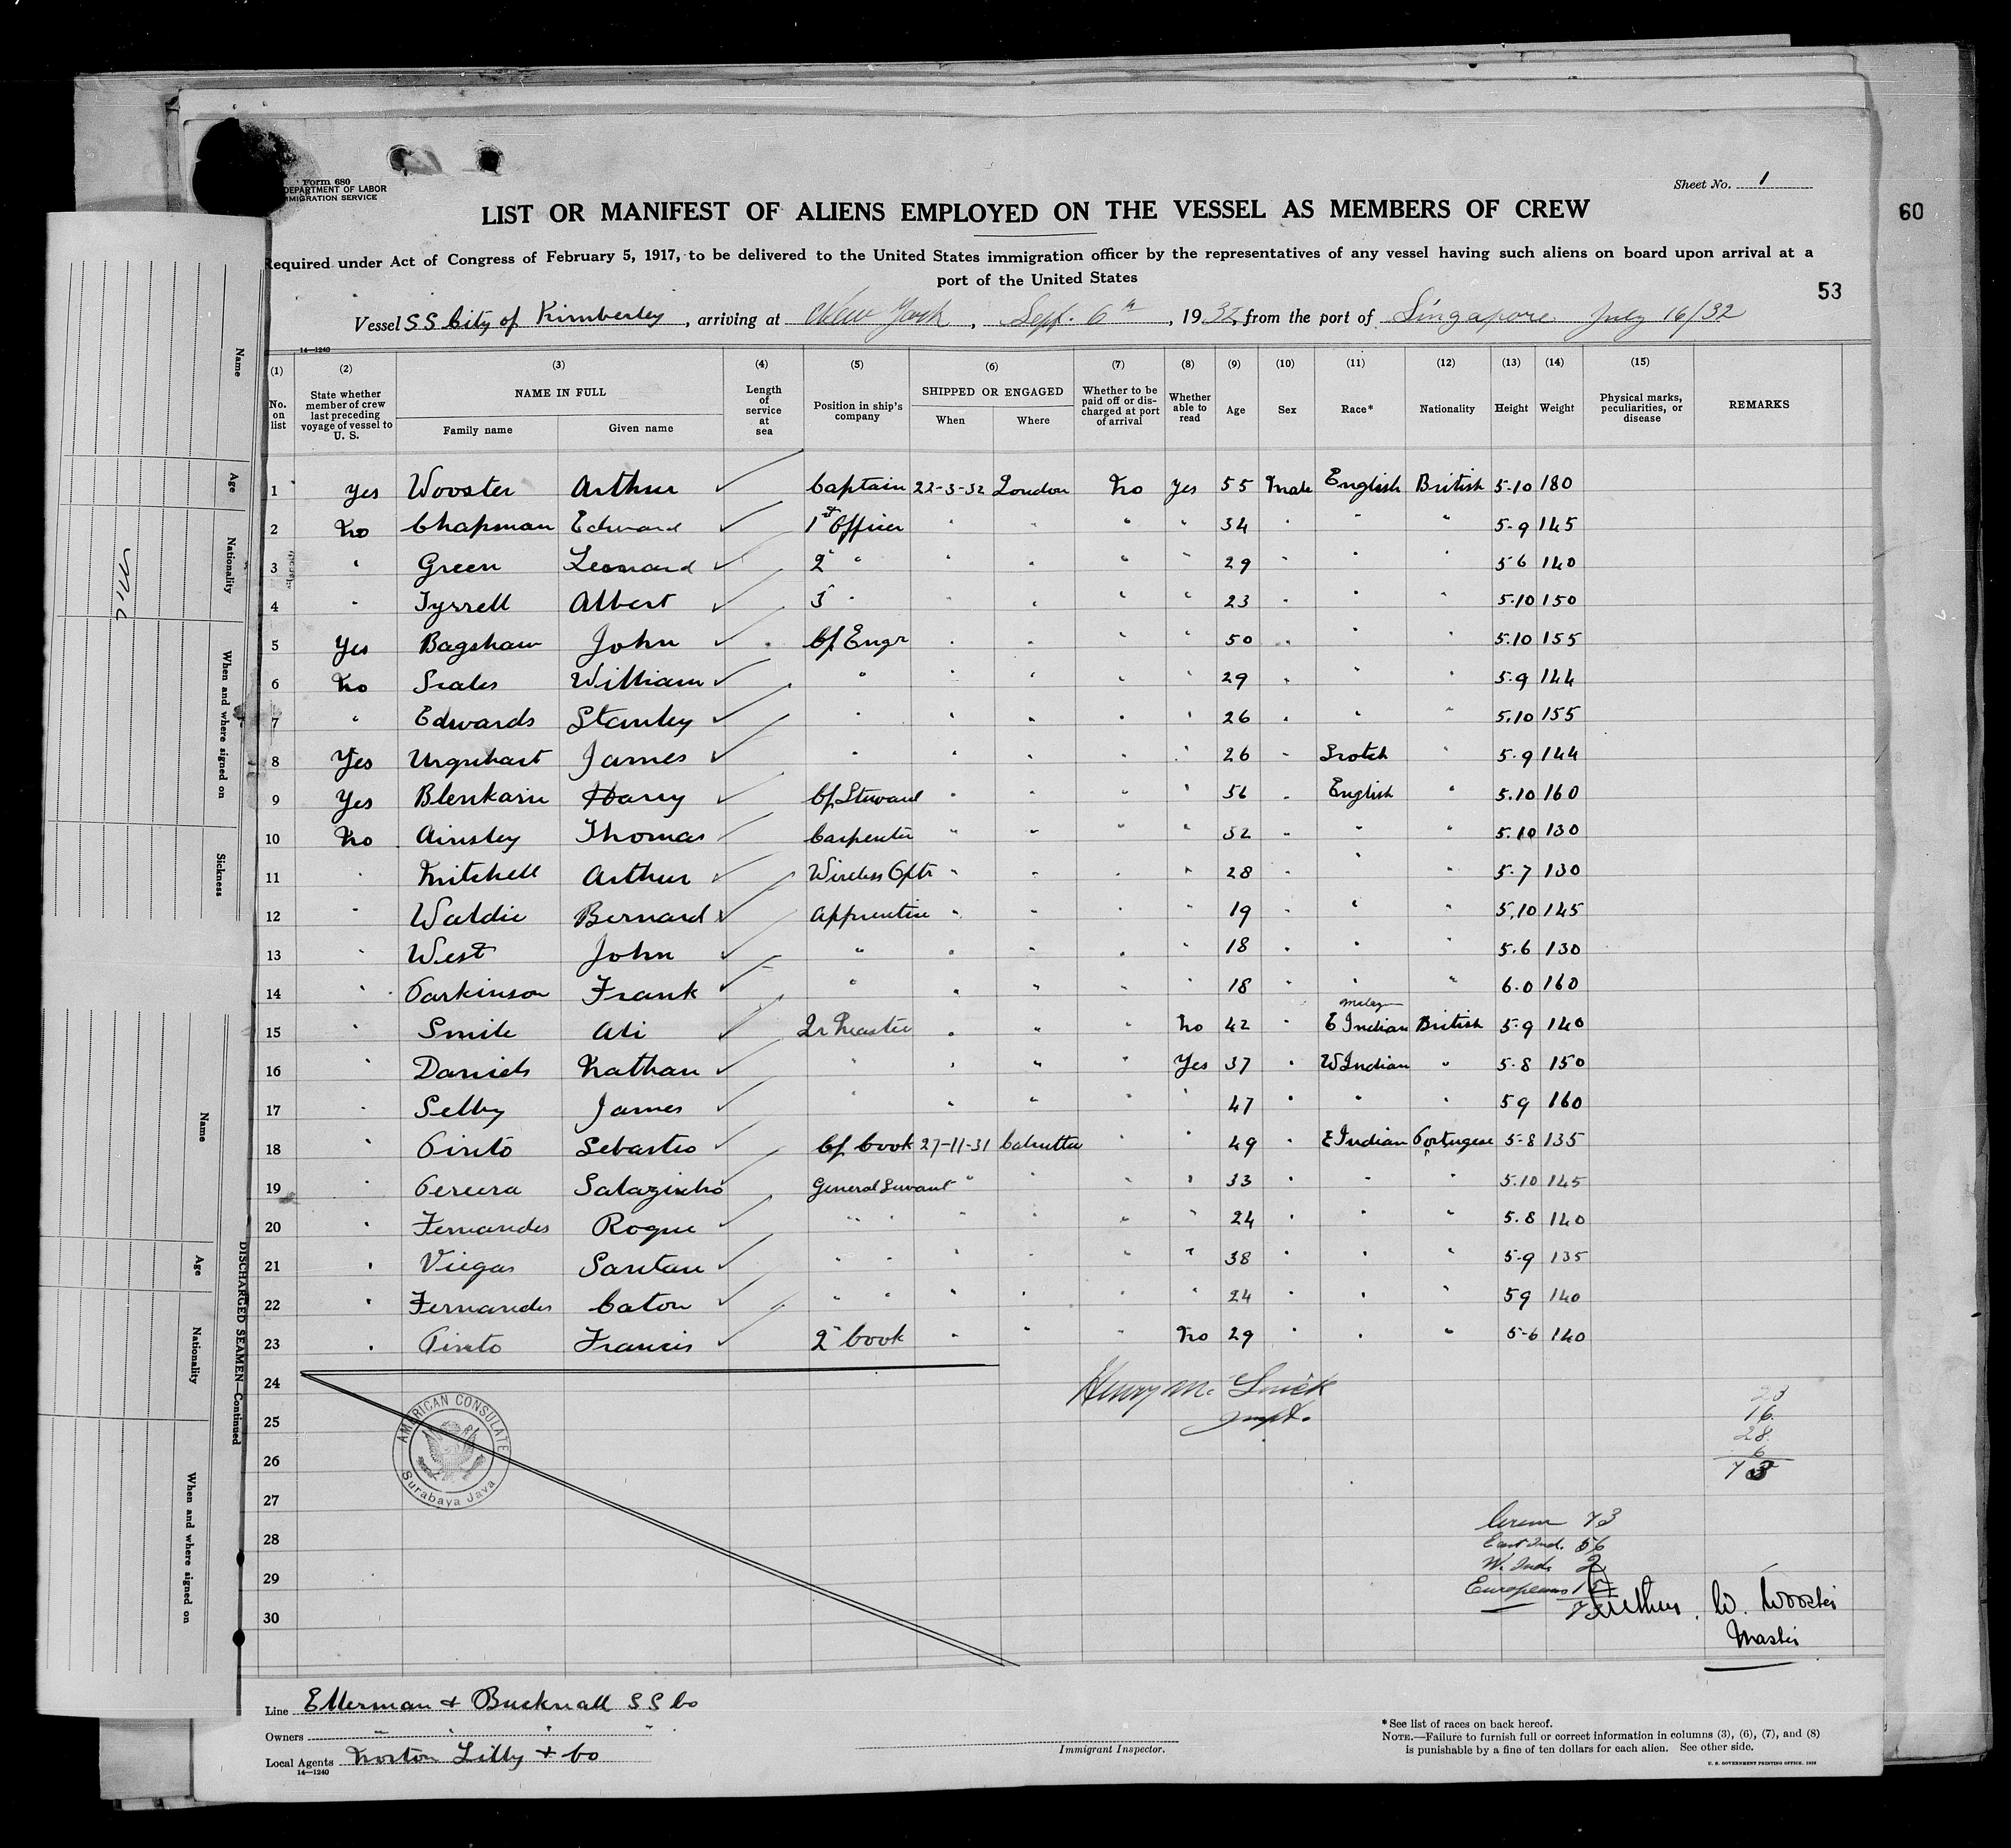 Form 680
DEPARTMENT OF LABOR
IMMIGRATION SERVICE
Sheet No. 1
LIST OR MANIFEST OF ALIENS EMPLOYED ON THE VESSEL AS MEMBERS OF CREW
60
Required under Act of Congress of February 5, 1917, to be delivered to the United States immigration officer by the representatives of any vessel having such aliens on board upon arrival at a
port of the United States
53
Vessel SS City of Kimberley, arriving at New York, Sept. 6th, 1932, from the port of Singapore July 16/32
14—1240
(1) (2) (3) (4) (5) (6) (7) (8) (9) (10) (11) (12) (13) (14) (15)
No. on list State whether member of crew last preceding voyage of vessel to U. S. NAME IN FULL Family name Given name Length of service at sea Position in ship's company SHIPPED OR ENGAGED When Where Whether to be paid off or discharged at port of arrival Whether able to read Age Sex Race* Nationality Height Weight Physical marks, peculiarities, or disease REMARKS
1 Yes Wooster Arthur ✓ Captain 22-3-32 London No Yes 55 Male English British 5-10 180
2 No Chapman Edward ✓ 1st Officer " " " " 34 " " " 5-9 145
3 " Green Leonard ✓ 2 " " " " " 29 " " " 5 6 140
4 " Tyrrell Albert ✓ 3 " " " " " 23 " " " 5.10 150
5 Yes Bagshaw John ✓ Cf. Engr " " " " 50 " " " 5.10 155
6 No Scales William ✓ " " " " " 29 " " " 5.9 144
7 " Edwards Stanley ✓ " " " " " 26 " " " 5.10 155
8 Yes Urquhart James ✓ " " " " " 26 " Scotch " 5.9 144
9 Yes Blenkarn Harry ✓ Cf. Steward " " " " 56 " English " 5.10 160
10 No Ainsley Thomas ✓ Carpenter " " " " 52 " " " 5.10 130
11 " Mitchell Arthur ✓ Wireless Optr " " " " 28 " " " 5-7 130
12 " Waldie Bernard ✓ Apprentice " " " " 19 " " " 5.10 145
13 " West John ✓ " " " " " 18 " " " 5.6 130
14 " Parkinson Frank ✓ " " " " " 18 " " " 6.0 160
Malay
15 " Smile Ali ✓ Qr Master " " " No 42 " E Indian British 5-9 140
16 " Daniels Nathan ✓ " " " " Yes 37 " W Indian " 5-8 150
17 " Selby James ✓ " " " " " 47 " " " 5 9 160
18 " Pinto Sebastio ✓ Cf. Cook 27-11-31 Calcutta " " 49 " E Indian Portugese 5-8 135
19 " Pereira General Servant " " " " 33 " " " 5.10 145
20 " Fernandes Roque ✓ " " " " " " 24 " " " 5.8 140
21 " Viegas Santan ✓ " " " " " " 38 " " " 5-9 135
22 " Fernandes Caton ✓ " " " " " " 24 " " " 5 9 140
23 " Pinto Francis ✓ 2 Cook " " " No 29 " " " 5-6 140
24
25
26
27
28
29
30
AMERICAN CONSULATE
Surabaya Java
Henry M.
23
16
28
6
73
Crew 73
East Ind. 56
W. Inds 2
Europeans 15
Arthur W. Wooster
Master
Line Ellerman & Bucknall S S Co
Owners " " " "
Local Agents Norton Lilly & Co
14—1240
Immigrant Inspector.
*See list of races on back hereof.
NOTE.—Failure to furnish full or correct information in columns (3), (6), (7), and (8)
is punishable by a fine of ten dollars for each alien. See other side.
U. S. GOVERNMENT PRINTING OFFICE
Name
Age
Nationality
When and where signed on
Sickness
DISCHARGED SEAMEN—Continued
Name
Age
Nationality
When and where signed on